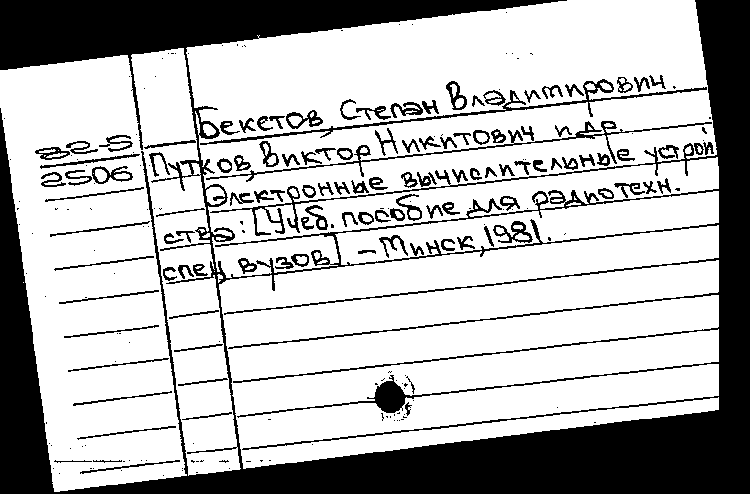 Бекетов, Степан Владимирович.
82-5
2506
Путков, Виктор Никитович и др.
Электронные вычислительные устрой
ства: [Учеб. пособие для радиотехн.
спец. вузов]. – Минск, 1981.